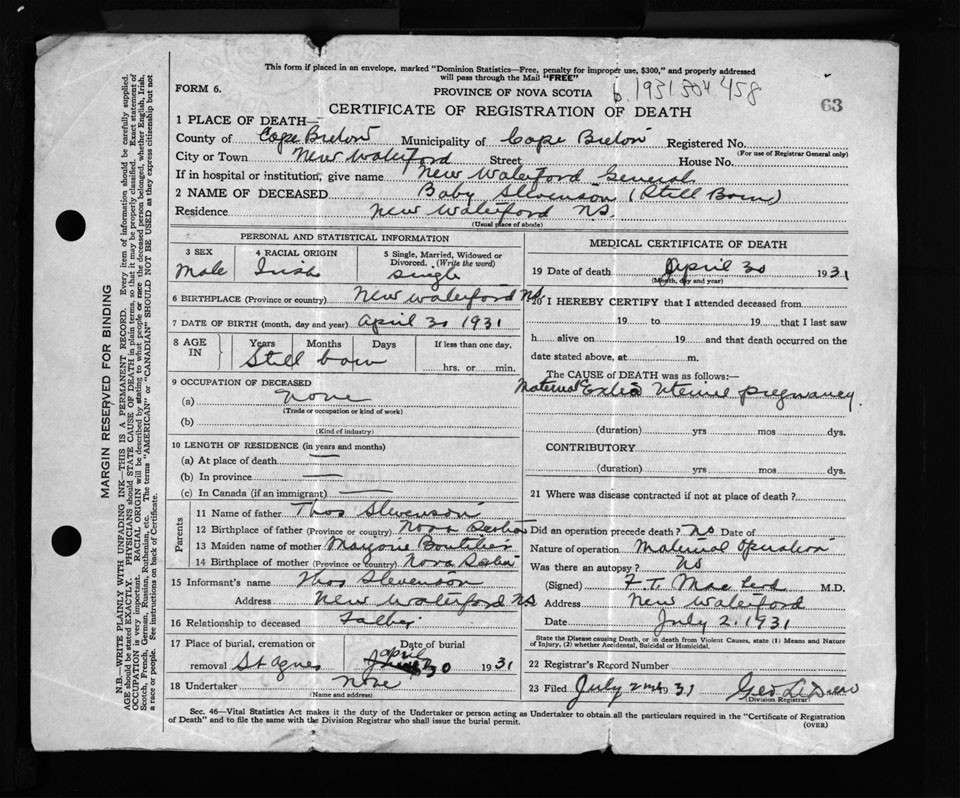 This form if placed in an envelope, marked "Dominion Statistics—Free, penalty for improper use, $300," and properly addressed
will pass through the Mail "FREE"
FORM 6.
PROVINCE OF NOVA SCOTIA
b. 1931 504 458
63
CERTIFICATE OF REGISTRATION OF DEATH
1 PLACE OF DEATH—
County of Cape Breton Municipality of Cape Breton Registered No.
(For use of Registrar General only)
City or Town New Waterford Street House No.
If in hospital or institution, give name New Waterford General
2 NAME OF DECEASED Baby Stevenson (Still Born)
Residence New Waterford NS.
(Usual place of abode)
PERSONAL AND STATISTICAL INFORMATION
3 SEX 4 RACIAL ORIGIN 5 Single, Married, Widowed or
Divorced. (Write the word)
Male Irish Single
6 BIRTHPLACE (Province or country) New Waterford NS
7 DATE OF BIRTH (month, day and year) April 30 1931
8 AGE IN Years Months Days If less than one day.
Still born hrs. or min.
9 OCCUPATION OF DECEASED
(a) None
(Trade or occupation or kind of work)
(b)
(Kind of industry)
10 LENGTH OF RESIDENCE (in years and months)
(a) At place of death —
(b) In province —
(c) In Canada (if an immigrant) —
Parents
11 Name of father Thos Stevenson
12 Birthplace of father (Province or country) Nova Scotia
13 Maiden name of mother Marjorie Boutilier
14 Birthplace of mother (Province or country) Nova Scotia
15 Informant's name Thos Stevenson
Address New Waterford NS
16 Relationship to deceased Father
17 Place of burial, cremation or Date of burial
removal St Agnes April 30 1931
18 Undertaker None
(Name and address)
MEDICAL CERTIFICATE OF DEATH
19 Date of death April 30 1931
(Month, day and year)
20 I HEREBY CERTIFY that I attended deceased from
19 to 19 that I last saw
h alive on 19 and that death occurred on the
date stated above, at m.
The CAUSE OF DEATH was as follows:—
Maternal Extra Uterine pregnancy
(duration) yrs mos dys.
CONTRIBUTORY
(duration) yrs mos dys.
21 Where was disease contracted if not at place of death?
Did an operation precede death? No Date of
Nature of operation Maternal operation
Was there an autopsy? No
(Signed) F. T. MacLeod M.D.
Address New Waterford
Date July 2. 1931
State the Disease causing Death, or in death from Violent Causes, state (1) Means and Nature
of Injury, (2) whether Accidental, Suicidal or Homicidal.
22 Registrar's Record Number
23 Filed July 2nd 31 Geo
(Division Registrar)
Sec. 46—Vital Statistics Act makes it the duty of the Undertaker or person acting as Undertaker to obtain all the particulars required in the "Certificate of Registration
of Death" and to file the same with the Division Registrar who shall issue the burial permit.
(OVER)
MARGIN RESERVED FOR BINDING
N.B.—WRITE PLAINLY WITH UNFADING INK—THIS IS A PERMANENT RECORD. Every item of information should be carefully supplied.
AGE should be stated EXACTLY. PHYSICIANS should STATE CAUSE OF DEATH in plain terms, so that it may be properly classified. Exact statement of
OCCUPATION is very important. RACIAL ORIGIN will be described by stating to what people or race the deceased person belonged, whether English, Irish,
Scotch, French, German, Russian, Ruthenian, etc. The terms "AMERICAN" or "CANADIAN" SHOULD NOT BE USED as they express citizenship but not
a race or people. See instructions on back of Certificate.